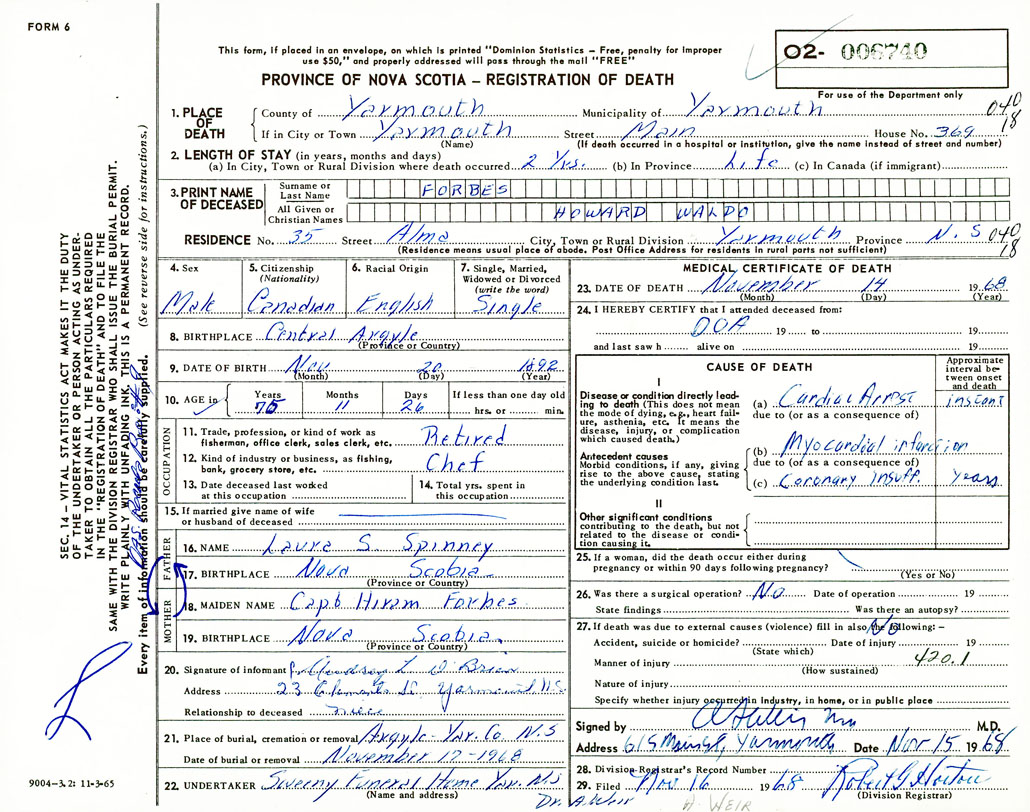 FORM 6
This form, if placed in an envelope, on which is printed "Dominion Statistics – Free, penalty for improper
use $50," and properly addressed will pass through the mail "FREE"
PROVINCE OF NOVA SCOTIA – REGISTRATION OF DEATH
O2- 006740
For use of the Department only
1. PLACE OF DEATH
County of Yarmouth Municipality of Yarmouth 040
If in City or Town Yarmouth Street Main House No. 369 18
(Name) (If death occurred in a hospital or institution, give the name instead of street and number)
2. LENGTH OF STAY (in years, months and days)
(a) In City, Town or Rural Division where death occurred 2 Yrs. (b) In Province Life (c) In Canada (if immigrant)
3. PRINT NAME OF DECEASED
Surname or Last Name FORBES
All Given or Christian Names HOWARD WALDO
RESIDENCE No. 35 Street Alma City, Town or Rural Division Yarmouth Province N. S 040
(Residence means usual place of abode. Post Office Address for residents in rural parts not sufficient) 18
4. Sex
Male
5. Citizenship
(Nationality)
Canadian
6. Racial Origin
English
7. Single, Married,
Widowed or Divorced
(write the word)
Single
8. BIRTHPLACE Central Argyle
(Province or Country)
9. DATE OF BIRTH Nov 20 1892
(Month) (Day) (Year)
10. AGE in
Years Months Days If less than one day old
75 11 26 hrs. or min.
OCCUPATION
11. Trade, profession, or kind of work as
fisherman, office clerk, sales clerk, etc. Retired
12. Kind of industry or business, as fishing,
bank, grocery store, etc. Chef
13. Date deceased last worked
at this occupation
14. Total yrs. spent in
this occupation
15. If married give name of wife
or husband of deceased
FATHER
16. NAME Laura S. Spinney
17. BIRTHPLACE Nova Scotia
(Province or Country)
MOTHER
18. MAIDEN NAME Capt Hiram Forbes
19. BIRTHPLACE Nova Scotia
(Province or Country)
20. Signature of informant
Address 23 St. Yarmouth, N.S.
Relationship to deceased niece
21. Place of burial, cremation or removal Argyle Yar. Co. N.S
Date of burial or removal November 17-1968
22. UNDERTAKER Sweeny Funeral Home Yar. N.S
(Name and address)
MEDICAL CERTIFICATE OF DEATH
23. DATE OF DEATH November 14 1968
(Month) (Day) (Year)
24. I HEREBY CERTIFY that I attended deceased from:
DOA 19 to 19
and last saw h alive on 19
CAUSE OF DEATH
Approximate
interval be-
tween onset
and death
I
Disease or condition directly lead-
ing to death (This does not mean
the mode of dying, e.g., heart fail-
ure, asthenia, etc. It means the
disease, injury, or complication
which caused death.)
(a) Cardiac Arrest instant
due to (or as a consequence of)
Antecedent causes
Morbid conditions, if any, giving
rise to the above cause, stating
the underlying condition last.
(b) Myocardial infarction
due to (or as a consequence of)
(c) Coronary Insuff. years
II
Other significant conditions
contributing to the death, but not
related to the disease or condi-
tion causing it.
25. If a woman, did the death occur either during
pregnancy or within 90 days following pregnancy?
(Yes or No)
26. Was there a surgical operation? No Date of operation 19
State findings Was there an autopsy?
27. If death was due to external causes (violence) fill in also the following: – No
Accident, suicide or homicide? Date of injury 19
(State which)
420.1
Manner of injury
(How sustained)
Nature of injury
Specify whether injury occurred in Industry, in home, or in public place
Signed by M.D.
Address 615 Main St, Yarmouth Date Nov 15 1968
28. Division Registrar's Record Number
29. Filed Nov 16 1968 Robert G Horton
(Division Registrar)
Dr. A. Weir
A WEIR
9004–3.2: 11-3-65
SEC. 14 – VITAL STATISTICS ACT MAKES IT THE DUTY
OF THE UNDERTAKER OR PERSON ACTING AS UNDER-
TAKER TO OBTAIN ALL THE PARTICULARS REQUIRED
IN THE "REGISTRATION OF DEATH" AND TO FILE THE
SAME WITH THE DIVISION REGISTRAR WHO SHALL ISSUE THE BURIAL PERMIT.
WRITE PLAINLY WITH UNFADING INK. THIS IS A PERMANENT RECORD.
Every item of information should be carefully supplied. (See reverse side for instructions.)